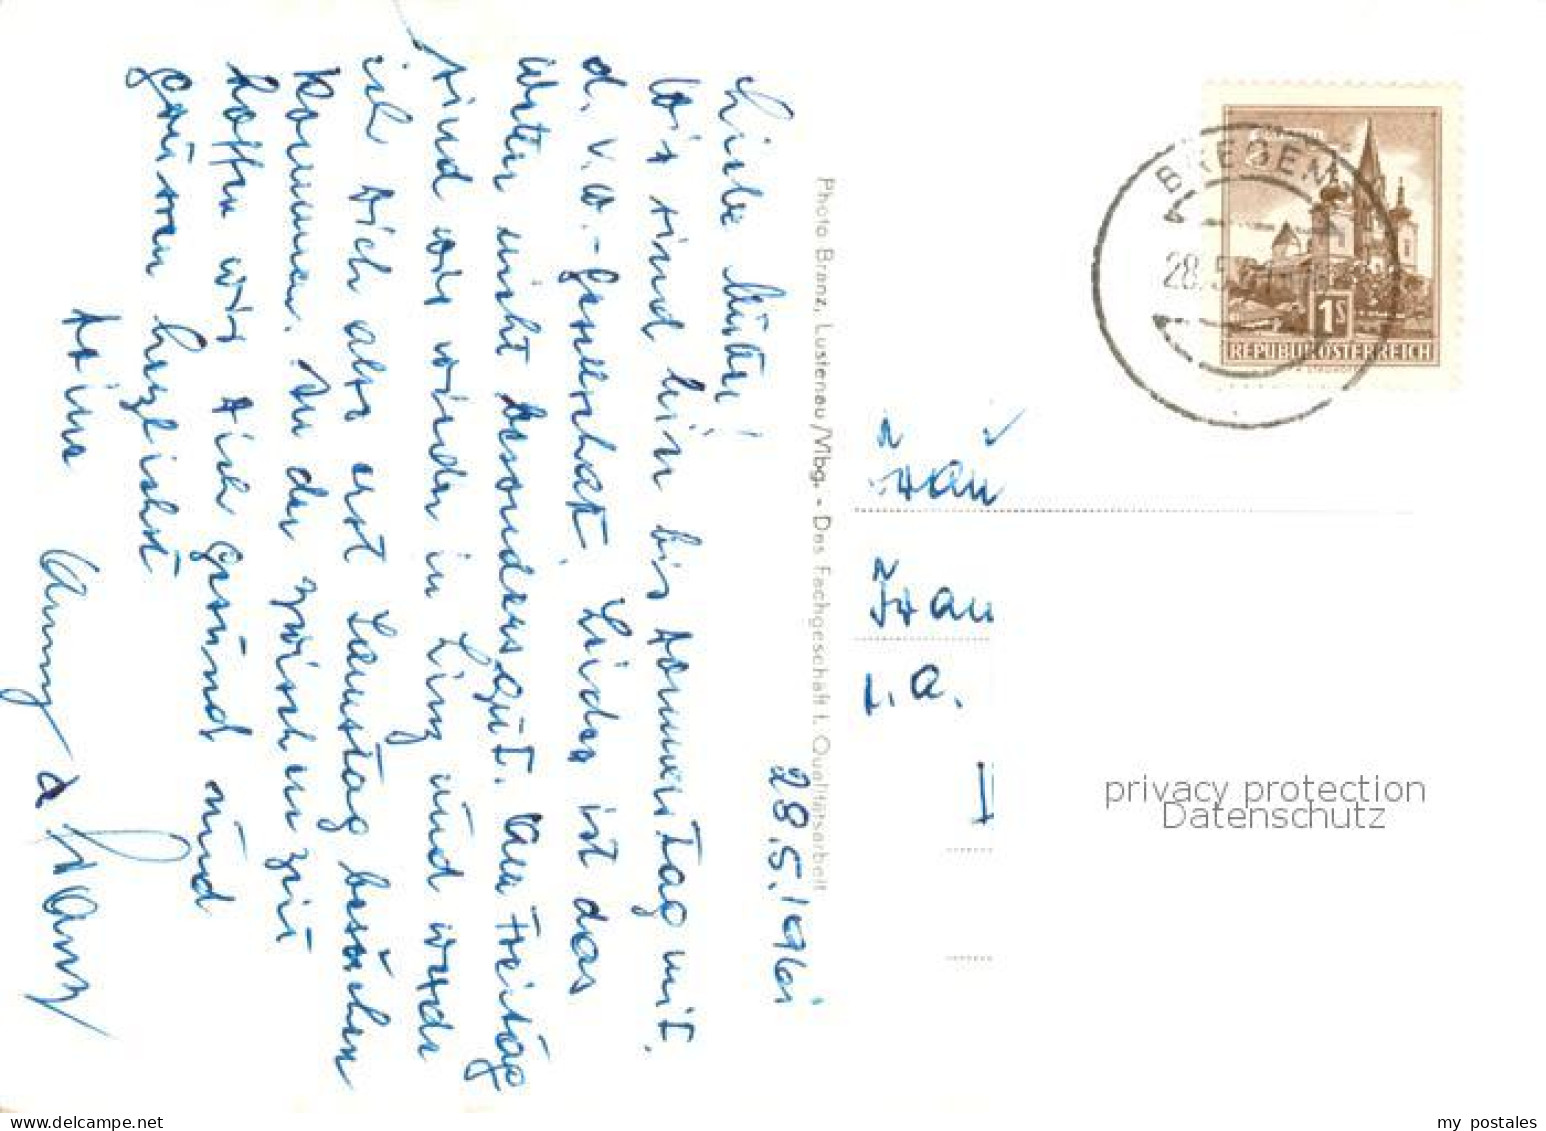 28.5.1961
Liebe Mutti!
Wir sind hier bis Donnerstag mit
d. V.W.-Gesellschaft. Leider ist das
Wetter nicht besonders gut. Am Freitag
sind wir wieder in Linz und werde
ich Dich also erst Samstag besuchen
kommen. In der Zwischenzeit
hoffen wir Dich gesund und
grüssen herzlichst
Deine
Anny & Franz
Photo Branz, Lustenau/Vlbg. - Das Fachgeschäft f. Qualitätsarbeit
BREGEN
28.5.
1S
REPUBLIK ÖSTERREICH
Frau
Frau
privacy protection
Datenschutz
my postales